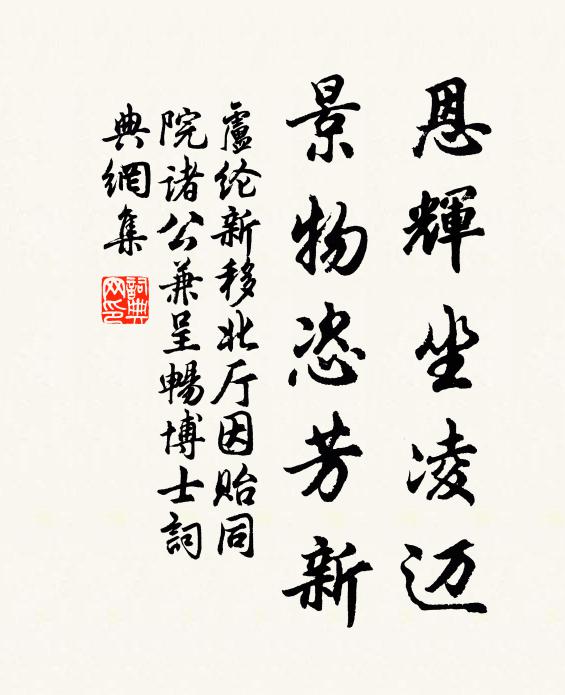 恩輝坐凌迈
景物恣芳新
盧纶新移北厅因贻同
院诸公兼呈暢博士詞
典網集
詞典网印